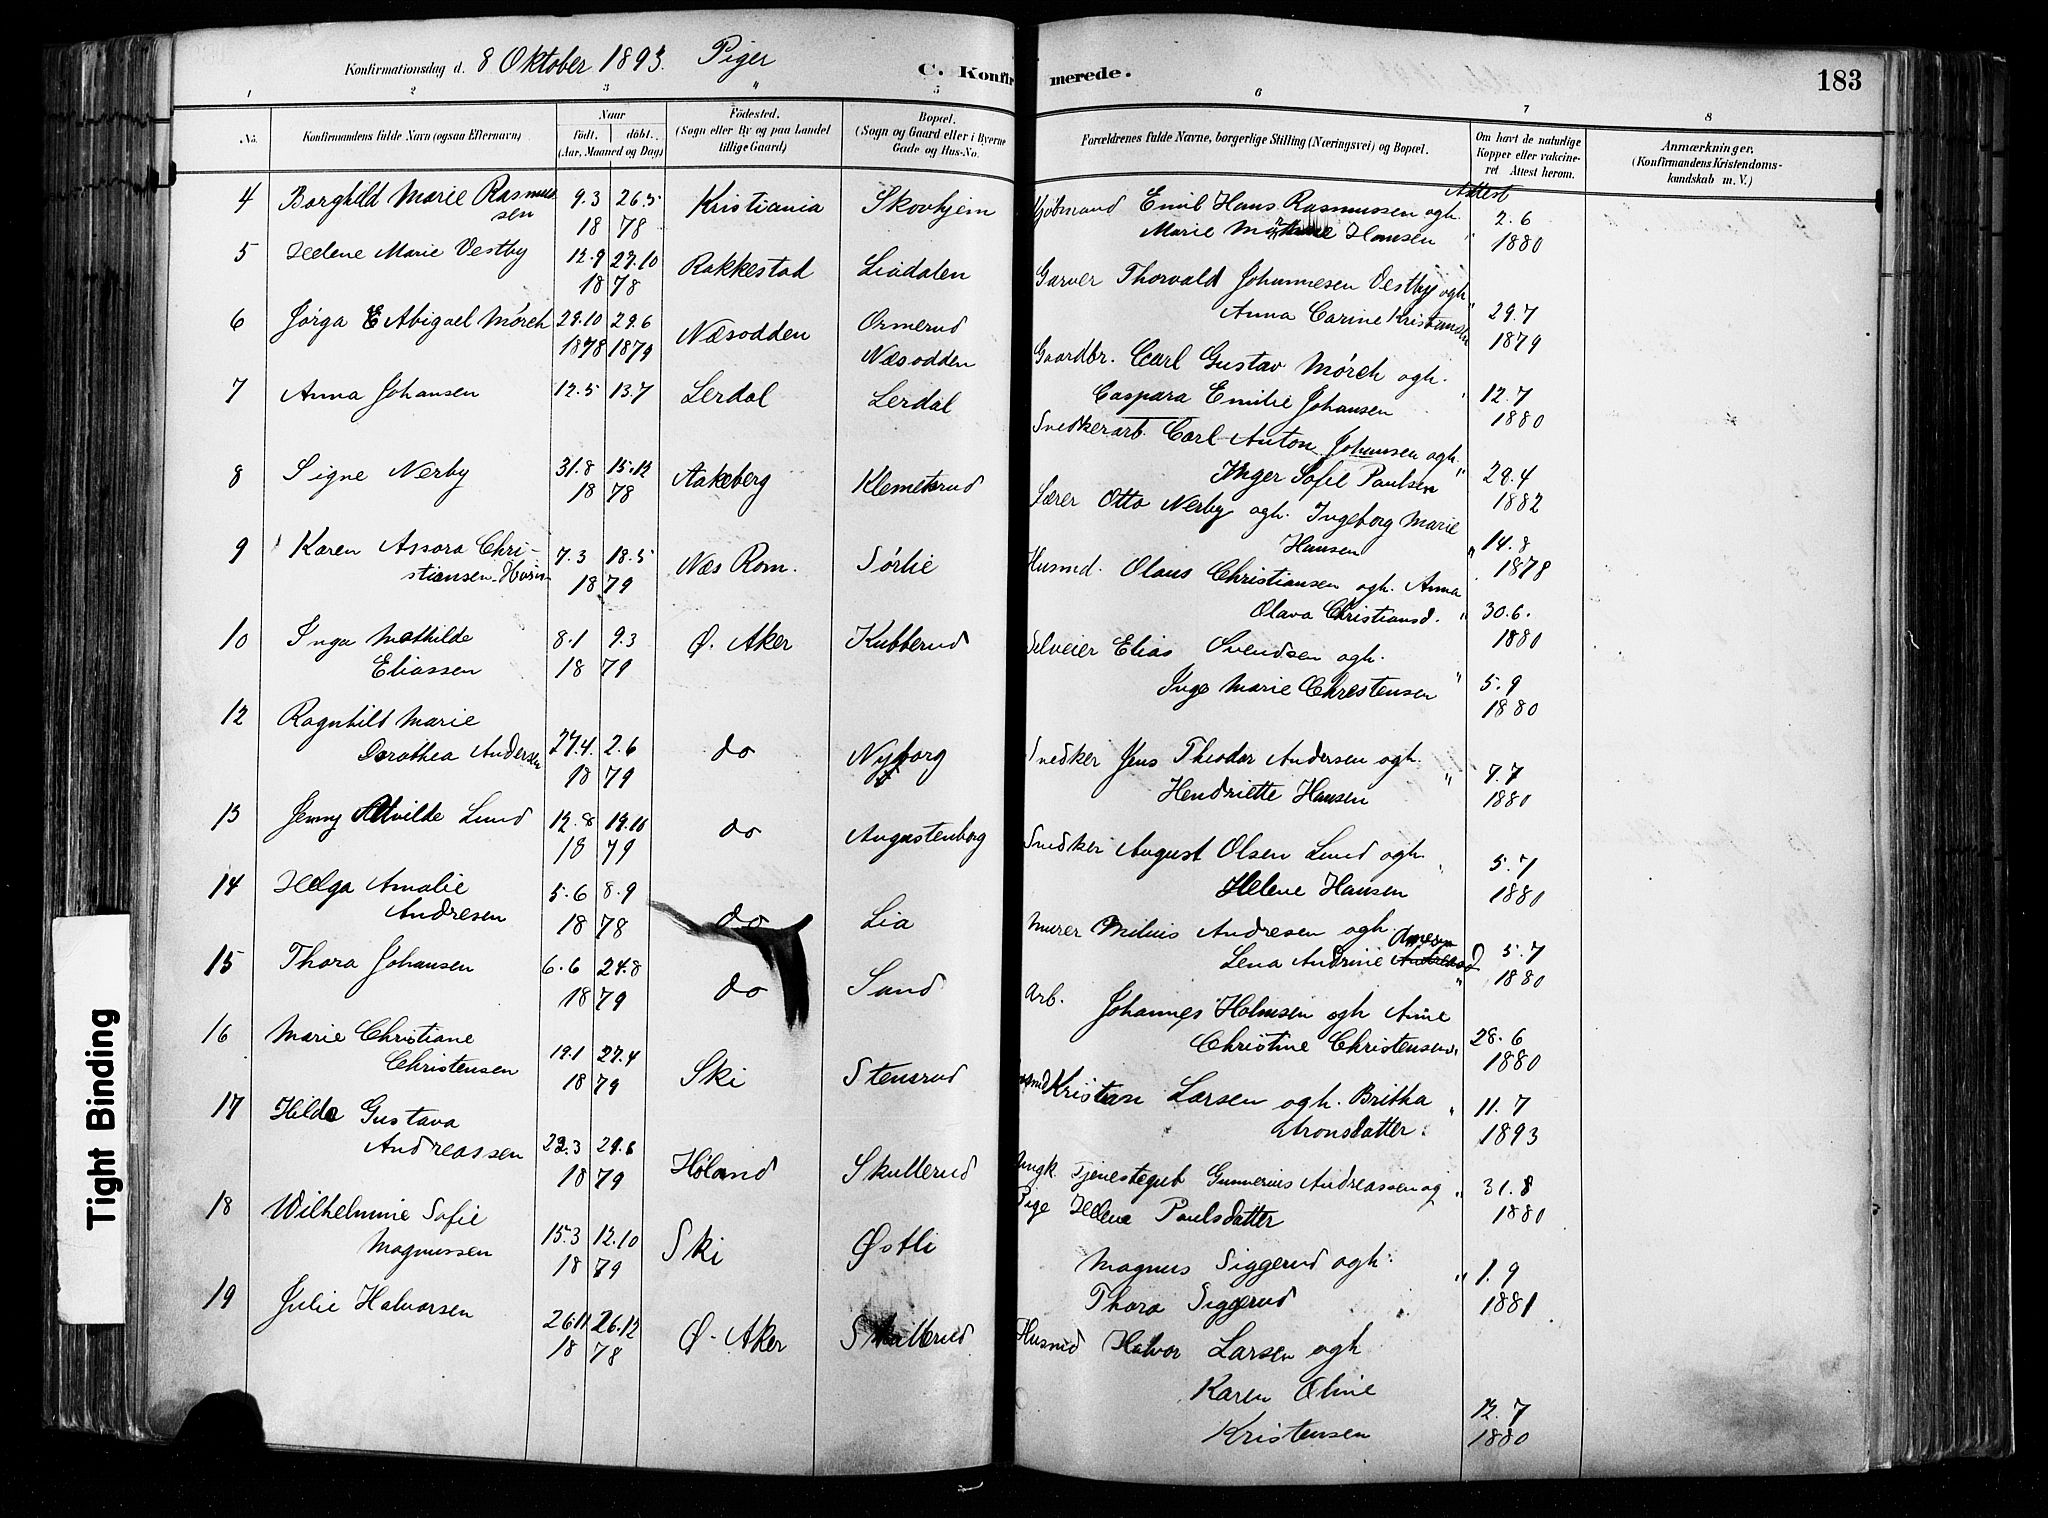 Konfirmationsdag d. 8 Oktober 1893. Piger
C. Konfirmerede.
183
1 2 3 4 5 6 7 8
No. Konfirmandens fulde Navn (ogsaa Efternavn) Naar født. døbt. (Aar, Maaned og Dag) Fødested. (Sogn eller By og paa Landet tillige Gaard) Bopæl. (Sogn og Gaard eller i Byerne Gade og Hus-No. Forældrenes fulde Navne, borgerlige Stilling (Næringsvei) og Bopæl. Om havt de naturlige Kopper eller vakcineret Attest herom. Anmærkninger. (Konfirmandens Kristendomskundskab m. V.)
4 Borghild Marie Rasmussen 9.3 26.5 1878 Kristiania Skovhjem Kjøbmand Emil Hans Rasmussen ogh. Marie Hansen Attest 2.6 1880
5 Helene Marie Vestby 12.9 27.10 1878 Rakkestad Liadalen Garver Thorvald Johannesen Vestby ogh. Anna Carine Kristiansen " 29.7 1879
6 Jørga E Abigael Mørch 29.10 1878 29.6 1879 Næsodden Ormerud Næsodden Gaardbr. Carl Gustav Mørch ogh. Caspara Emilie Johansen " 12.7 1880
7 Anna Johansen 12.5 13.7 Lerdal Lerdal Snedkerarb. Carl Anton Johansen ogh. Inger Sofie Paulsen " 29.4 1882
8 Signe Nerby 31.8 15.12 1878 Aakeberg Klemetsrud Lærer Otto Nerby ogh. Ingeborg Marie Hansen " 14.8 1878
9 Karen Assora Christiansen 7.3 18.5 1879 Næs Rom. Sørlie Husmd. Olaus Christiansen ogh. Anna Olava Christiansd. " 30.6. 1880
10 Inga Mathilde Eliassen 8.1 9.3 1879 Ø. Aker Kubberud Selveier Elias Svendsen ogh. Inge Marie Christensen " 5.9 1880
12 Ragnhild Marie Dorothea Andersen 27.4. 2.6 1879 do Nyborg Snedker Jens Theodor Andersen ogh. Hendriette Hansen " 7.7 1880
13 Jenny Alvilde Lund 12.8 19.10 1879 do Augustenborg Snedker August Olsen Lund ogh. Helene Hansen " 5.7 1880
14 Helga Amalie Andresen 5.6 8.9 1878 do Lia Murer Milius Andresen ogh. Lena Andrine " 5.7 1880
15 Thora Johansen 6.6 24.8 1879 do Sand Arb. Johannes Holmsen ogh Anne Christine Christensen " 28.6 1880
16 Marie Christiane Christensen 19.1 27.4 1879 Ski Stensrud Kristian Larsen ogh. Britha Aronsdatter " 11.7 1893
17 Hilda Gustava Andreassen 22.3 29.6 1879 Høland Skullerud Ungk. Tjenestegut Gunnerius Andreassen og Pige Helene Paulsdatter " 31.8 1880
18 Wilhelmine Sofie Magnussen 15.3 12.10 1879 Ski Østli Magnus Siggerud ogh. Thora Siggerud " 1.9 1881
19 Julie Halvorsen 26.11 26.12 1878 Ø. Aker Skullerud Husmd Halvor Larsen ogh Karen Oline Kristensen 12.7 1880
Tight Binding